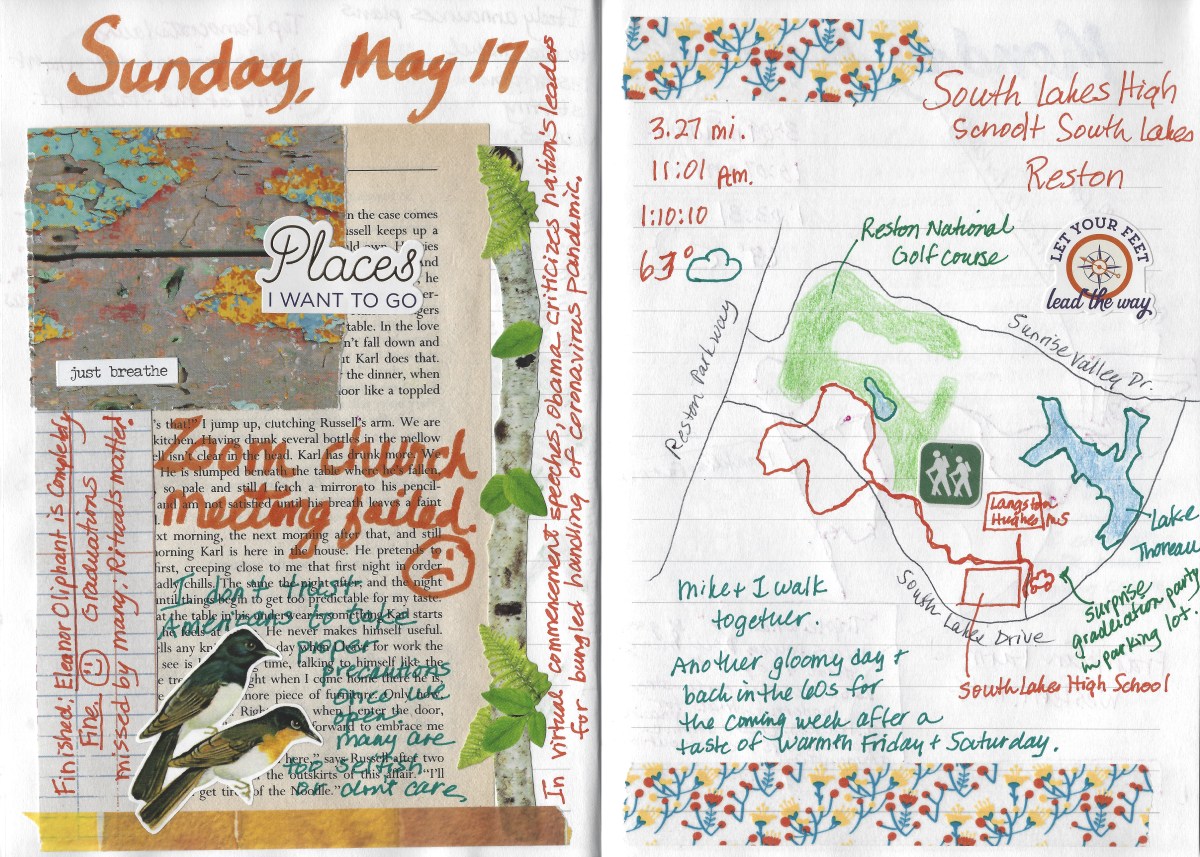 Sunday, May 17
Places
I WANT TO GO
just breathe
n the case comes
ussell keeps up a
he
table. In the love
n't fall down and
ut Karl does that.
r the dinner, when
oor like a toppled
's that!" I jump up, clutching Russell's arm. We are
kitchen. Having drunk several bottles in the mellow
ell isn't clear in the head. Karl has drunk more. We
He is slumped beneath the table where he's fallen,
so pale and still I fetch a mirror to his pencil-
and am not satisfied until his breath leaves a faint
xt morning, the next morning after that, and still
orning Karl is here in the house. He pretends to
first, creeping close to me that first night in order
chills. The same the night after, and the night
until things begin to get too predictable for my taste.
at the table in his underwear
He never makes himself useful.
time, talking to himself like the
right when I come home there he is,
more piece of furniture. Only now,
when I enter the door,
forward to embrace me
here," says Russell after two
the outskirts of this affair. "I'll
get tired of the Noodle."
Zoom brunch
meeting failed.
I don't trust
Americans to take
proper
precautions
once we
open.
many are
too selfish
or don't care.
Finished: Eleanor Oliphant is Completely
Fine. Graduations
missed by many: Rituals matter!
In virtual commencement speeches, Obama criticizes nation's leaders
for bungled handling of coronavirus pandemic.
South Lakes High
School + South Lakes
Reston
3.27 mi.
11:01 Am.
1:10:10
63°
Reston National
Golf course
LET YOUR FEET
lead the way
Reston Parkway
Sunrise Valley Dr.
Langston
Hughes MS
Lake
Thoreau
South Lake Drive
surprise
graduation party
in parking lot.
South Lakes High School
Mike + I walk
together.
Another gloomy day +
back in the 60s for
the coming week after a
taste of warmth Friday + Saturday.